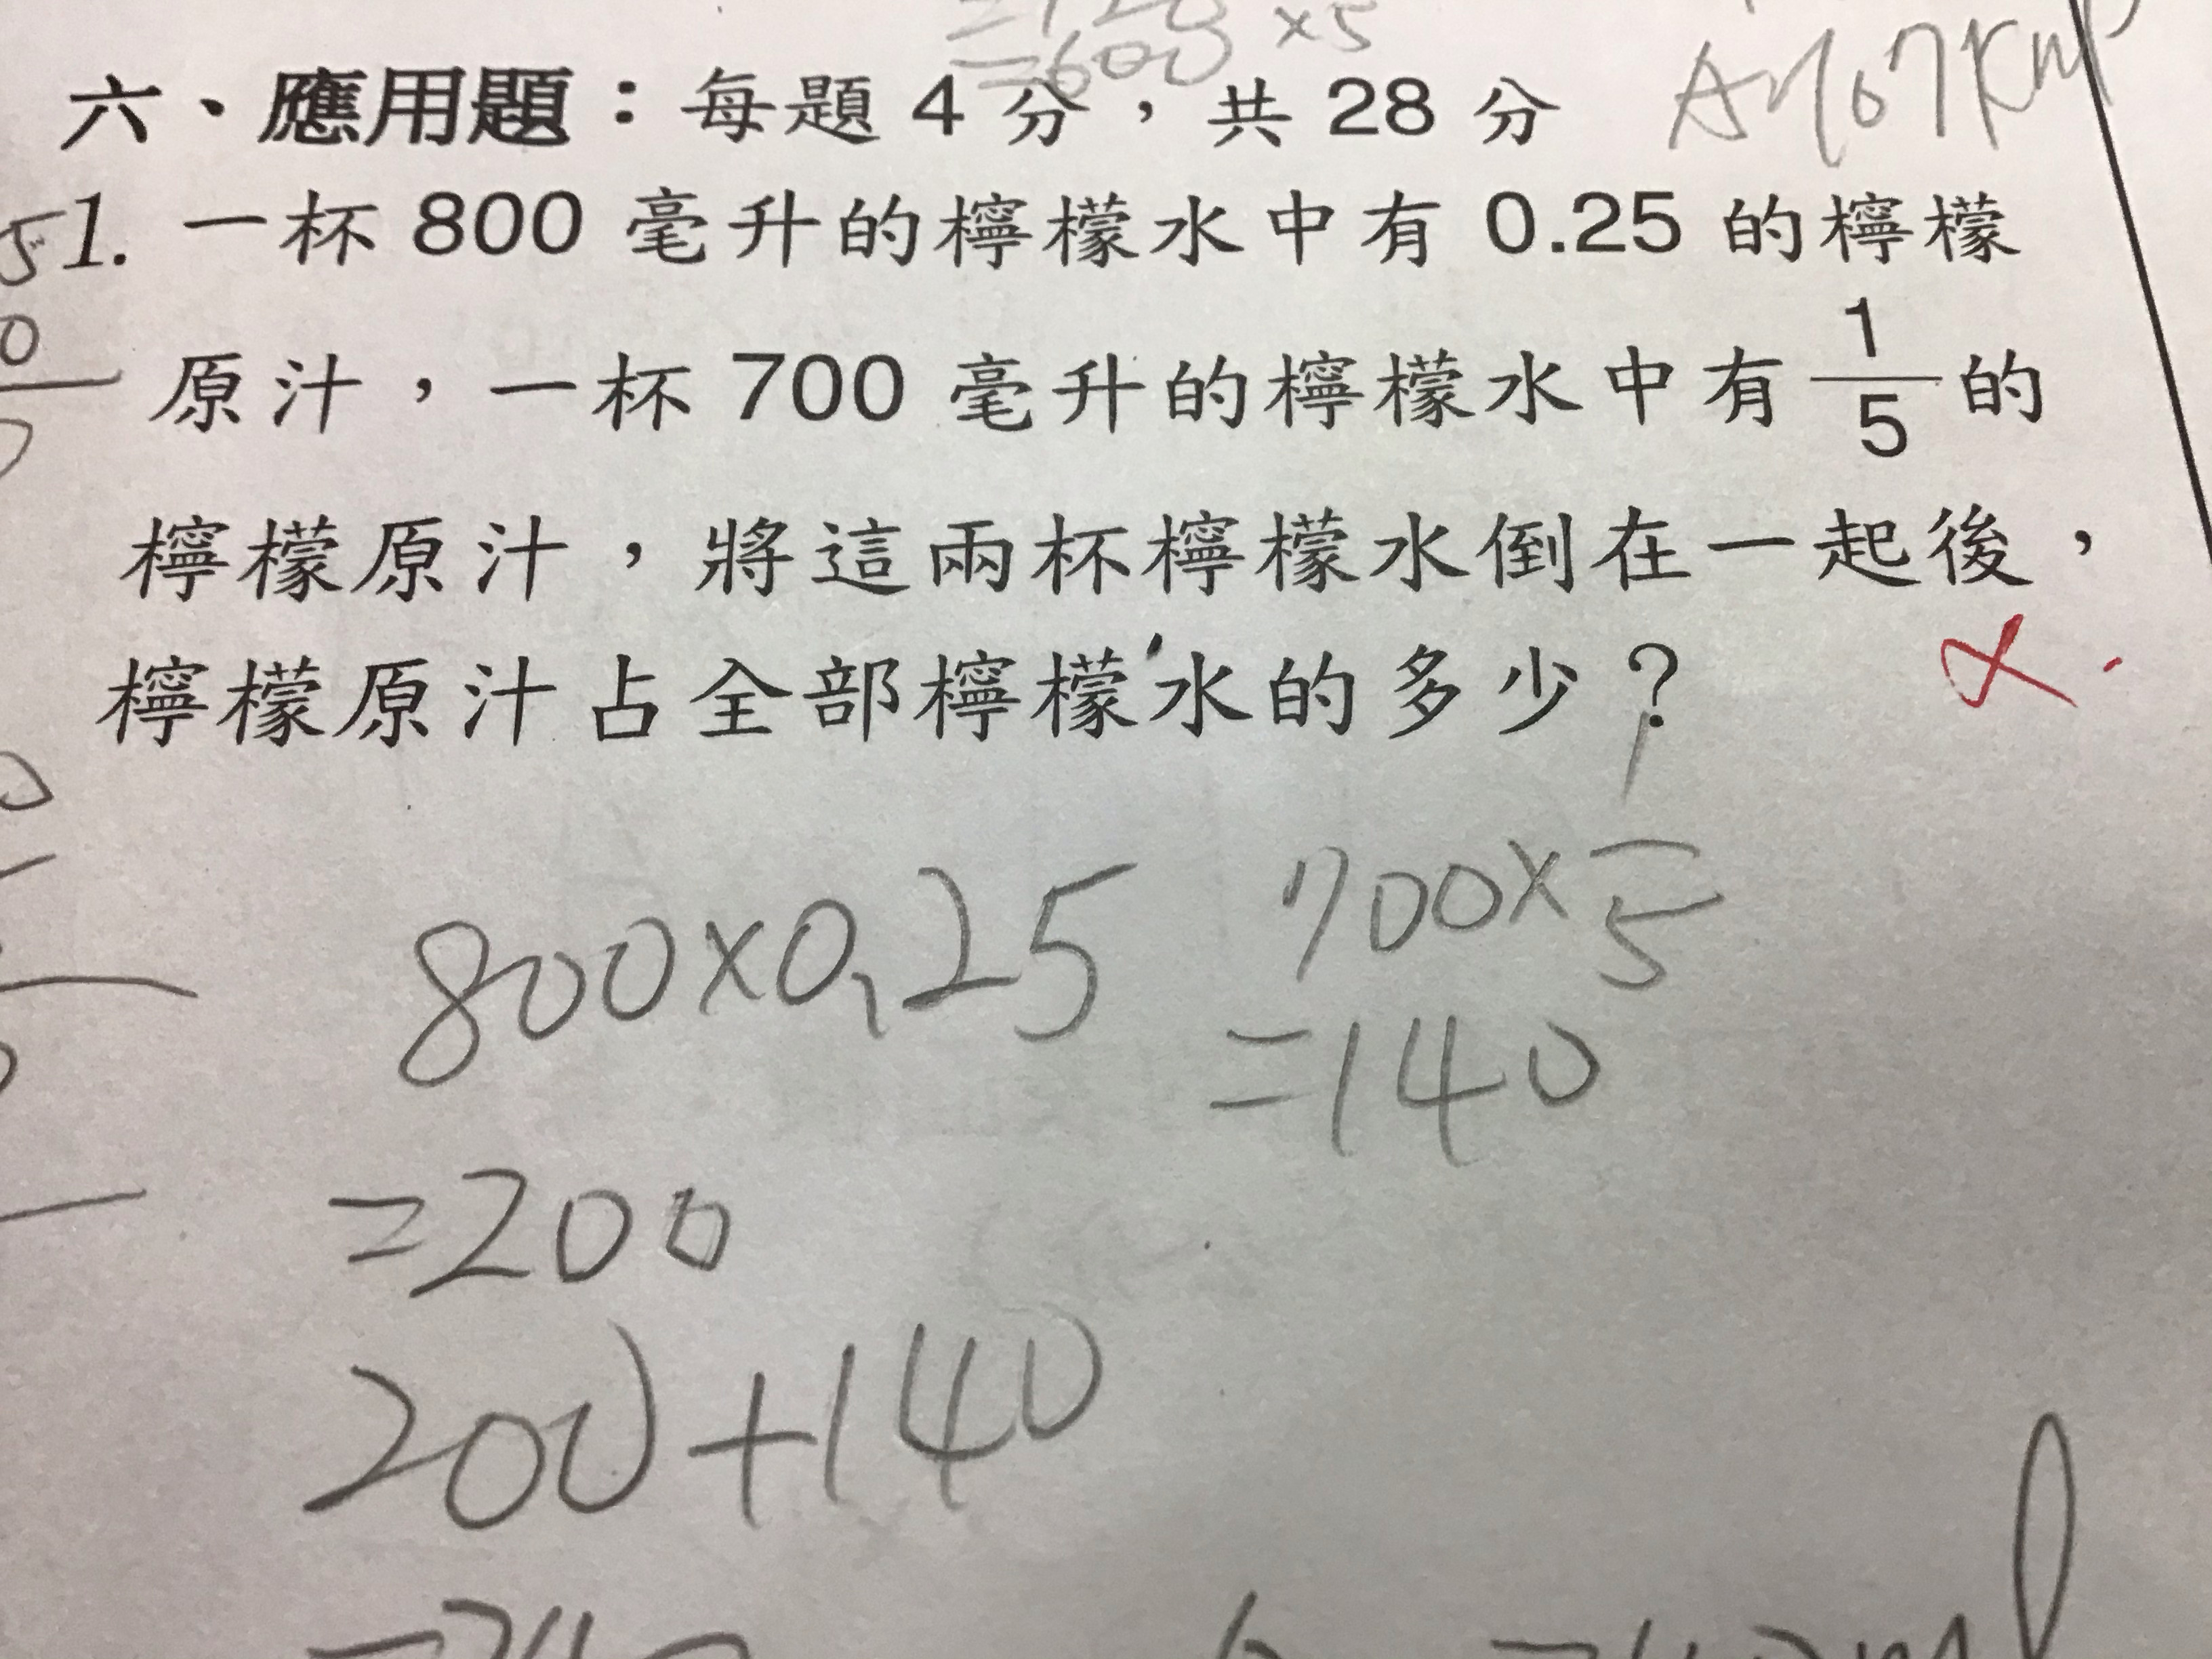 =120 ×5
=600
六、應用題：每題 4 分，共 28 分
1. 一杯 800 毫升的檸檬水中有 0.25 的檸檬
原汁，一杯 700 毫升的檸檬水中有 1/5 的
檸檬原汁，將這兩杯檸檬水倒在一起後，
檸檬原汁占全部檸檬水的多少？
800×0.25
=200
700×1/5
=140
200+140
=340